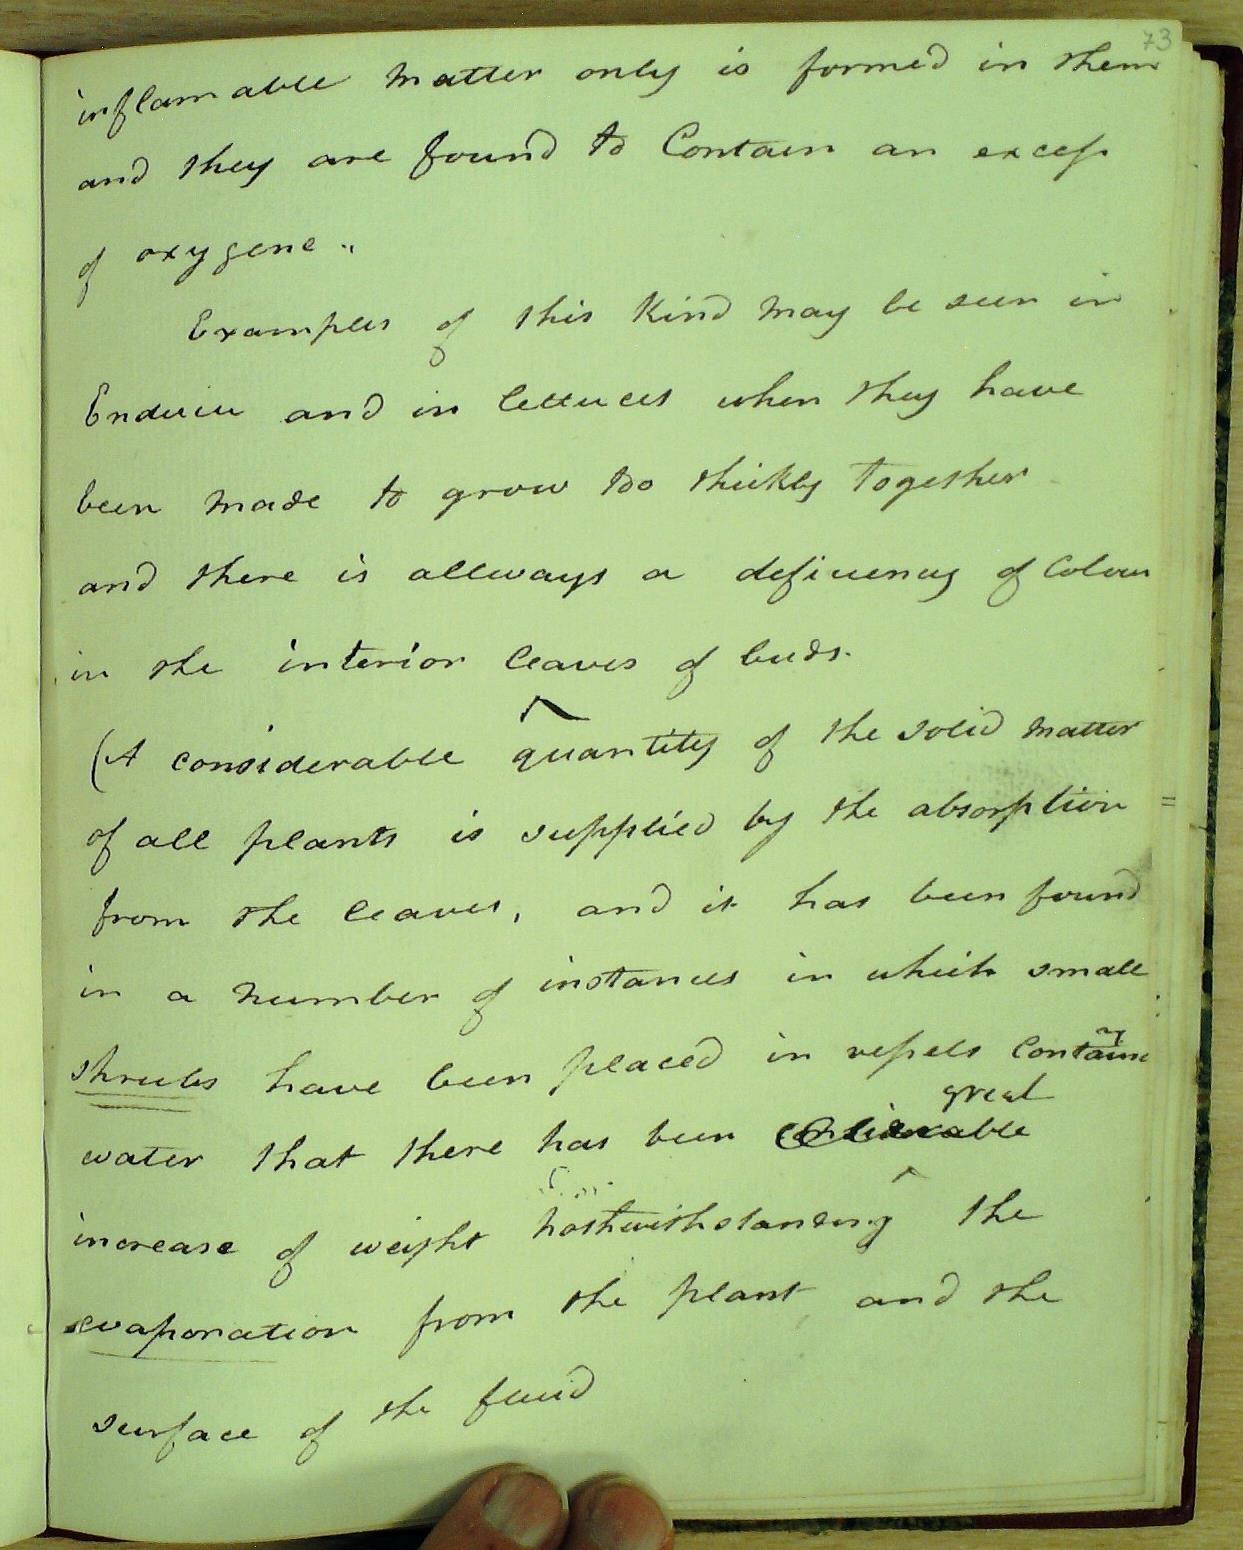 73
inflamable matter only is formed in them
and they are found to Contain an excess
of oxygene..
Examples of this Kind may be seen in
Endivie and in lettuces when they have
been made to grow too thickly together
and there is allways a deficiency of Colour
in the interior leaves of buds.
(A considerable ^ quantity of the solid matter
of all plants is supplied by the absorption =
from the leaves, and it has been found
in a number of instances in which small
shrubs have been placed in vessels
great
water that there has been considerable
increase of weight nothwithstanding ^ the
evaporation from the plant and the
surface of the fluid